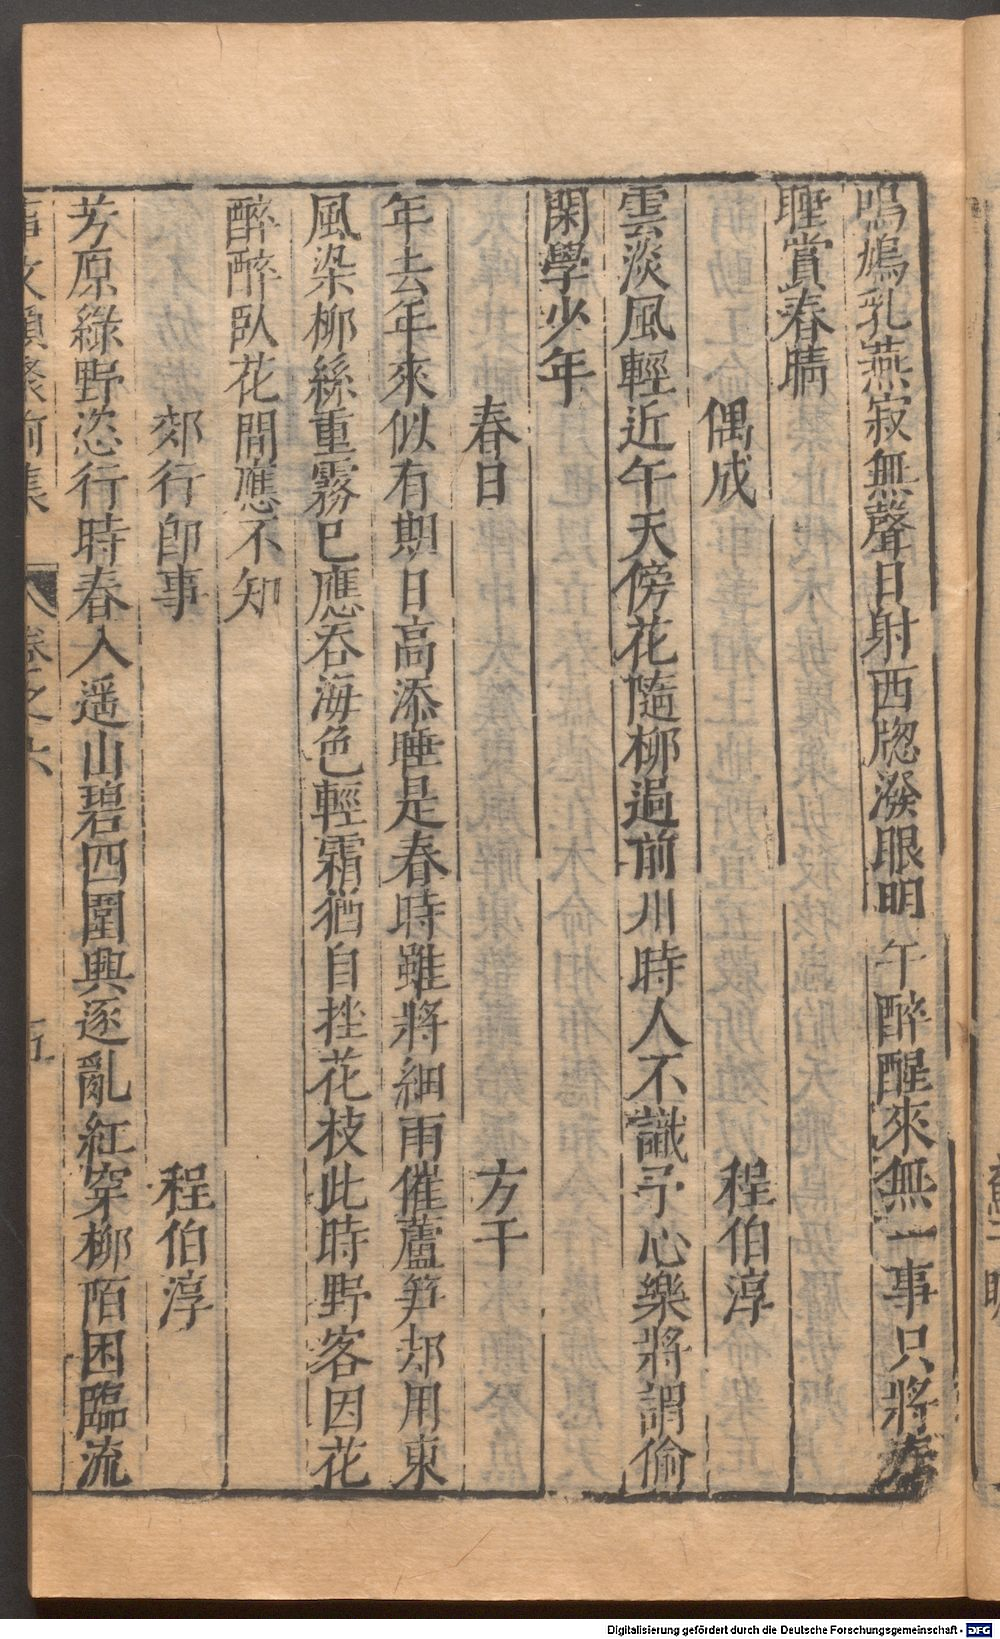 鳴鳩乳燕寂無聲日射西牎潑眼明午醉醒來無一事只將春
睡賞春睛
偶成 程伯淳
雲淡風輕近午天傍花隨柳過前川時人不識予心樂將謂偷
閑學少年
春日 方干
年去年來似有期日高添睡是春時雖將細雨催蘆笋却用東
風染柳絲重霧已應吞海色輕霜猶自挫花枝此時野客因花
醉醉臥花間應不知
郊行卽事 程伯淳
芳原綠野恣行時春入遥山碧四圍興逐亂紅穿柳陌困臨流
事文類聚前集 卷之六 五
Digitalisierung gefördert durch die Deutsche Forschungsgemeinschaft - DFG